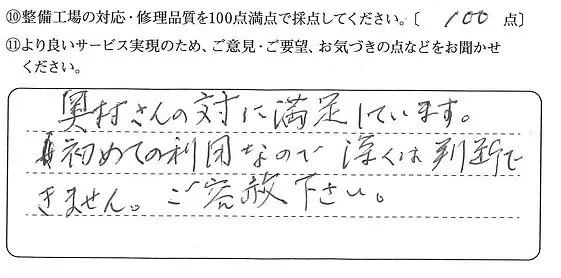 ⑩整備工場の対応・修理品質を100点満点で採点してください。〔 100 点〕
⑪より良いサービス実現のため、ご意見・ご要望、お気づきの点などをお聞かせ
ください。
奥村さんの対に満足しています。
初めての利用なので 深くは判断で
きません。ご容赦下さい。